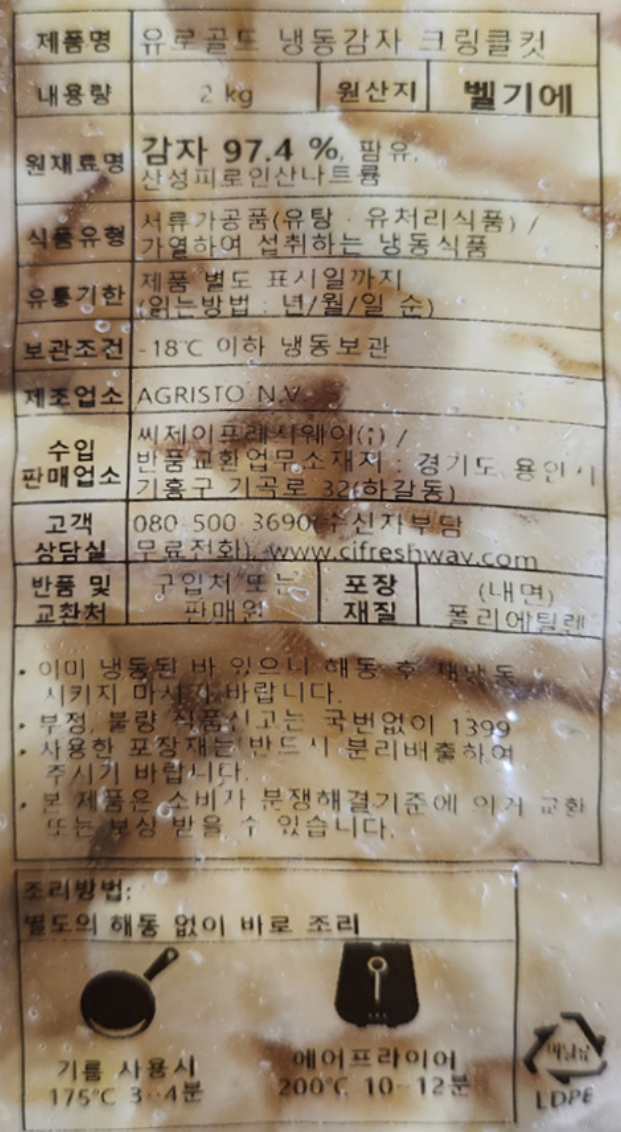 제품명 유로골드 냉동감자 크링클컷
내용량 2 kg 원산지 벨기에
원재료명 감자 97.4 %, 팜유,
산성피로인산나트륨
식품유형 서류가공품(유탕 · 유처리식품) /
가열하여 섭취하는 냉동식품
유통기한 제품 별도 표시일까지
(읽는방법 : 년/월/일 순)
보관조건 -18℃ 이하 냉동보관
제조업소 AGRISTO N.V.
수입
판매업소
씨제이프레시웨이(주) /
반품교환업무소재지 : 경기도 용인시
기흥구 기곡로 32(하갈동)
고객
상담실
080-500-3690(수신자부담
무료전화), www.cjfreshway.com
반품 및
교환처
구입처 또는
판매원
포장
재질
(내면)
폴리에틸렌
· 이미 냉동된 바 있으니 해동 후 재냉동
시키지 마시기 바랍니다.
· 부정, 불량 식품신고는 국번없이 1399
· 사용한 포장재는 반드시 분리배출하여
주시기 바랍니다.
· 본 제품은 소비자 분쟁해결기준에 의거 교환
또는 보상 받을 수 있습니다.
조리방법:
별도의 해동 없이 바로 조리
기름 사용시
175℃ 3-4분
에어프라이어
200℃ 10-12분
비닐류
LDPE